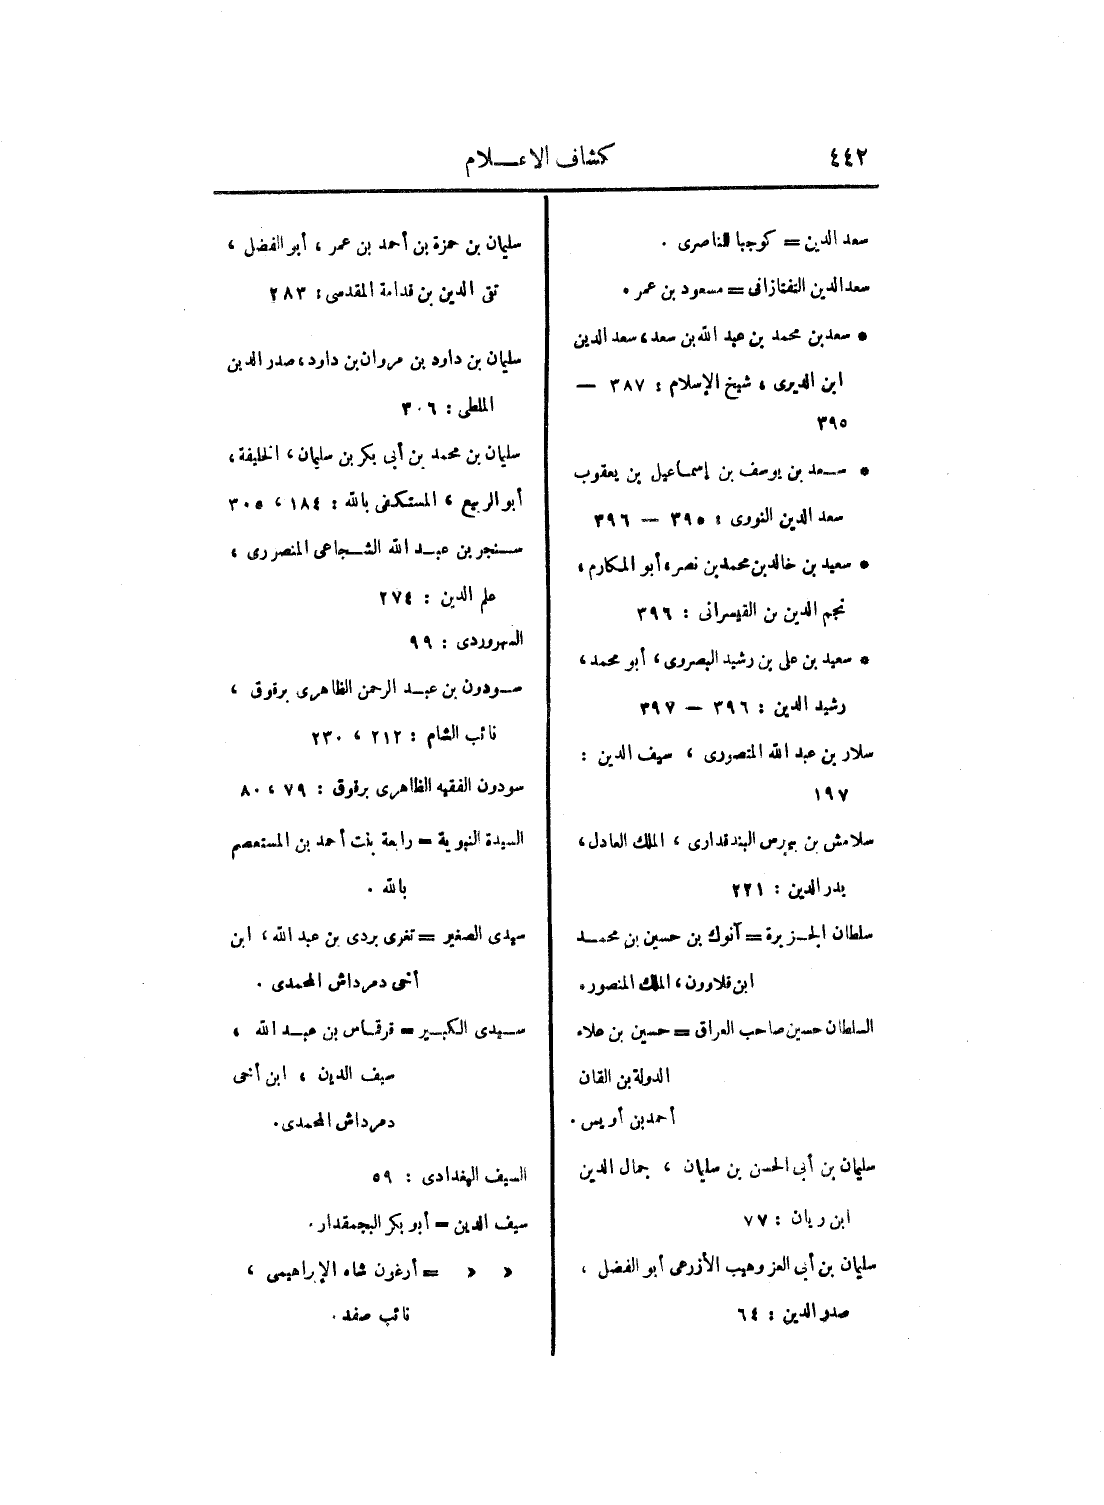 ٤٤٢
كشاف الاعـــلام
سعد الدين = كوجبا الناصرى .
سعد الدين التفتازانى = مسعود بن عمر .
● سعد بن محمد بن عبد الله بن سعد، سعد الدين
ابن الديرى ، شيخ الإسلام : ٣٨٧ —
٣٩٥
● سـعد بن يوسف بن إسماعيل بن يعقوب
سعد الدين النورى : ٣٩٥ — ٣٩٦
● سعيد بن خالد بن محمد بن نصر، أبو المكارم ،
نجم الدين بن القيسرانى : ٣٩٦
● سعيد بن على بن رشيد البصروى ، أبو محمد ،
رشيد الدين : ٣٩٦ — ٣٩٧
سلار بن عبد الله المنصورى ، سيف الدين :
١٩٧
سلامش بن بيبرس البندقدارى ، الملك العادل ،
بدر الدين : ٢٢١
سلطان الجـزيرة = آنوك بن حسين بن محمــد
ابن قلاوون ، الملك المنصور .
السلطان حسين صاحب العراق = حسين بن علاء
الدولة بن القان
أحمد بن أويس .
سليمان بن أبى الحسن بن سليمان ، جمال الدين
ابن ريان : ٧٧
سليمان بن أبى العز وهيب الأزرعى أبو الفضل ،
صدر الدين : ٦٤
سليمان بن حمزة بن أحمد بن عمر ، أبو الفضل ،
تقى الدين بن قدامة المقدسى : ٢٨٣
سليمان بن داود بن مروان بن داود ، صدر الدين
الملطى : ٣٠٦
سليمان بن محمد بن أبى بكر بن سليمان ، الخليفة ،
أبو الربيع ، المستكفى بالله : ١٨٤ ، ٣٠٥
سـنجر بن عبـد الله الشـجاعى المنصورى ،
علم الدين : ٢٧٤
السهروردى : ٩٩
سـودون بن عبـد الرحمن الظاهرى برقوق ،
نائب الشام : ٢١٢ ، ٢٣٠
سودون الفقيه الظاهرى برقوق : ٧٩ ، ٨٠
السيدة النبوية = رابعة بنت أحمد بن المستعصم
بالله .
سيدى الصغير = تغرى بردى بن عبد الله ، ابن
أخى دمرداش المحمدى .
سـيدى الكبـير = قرقماس بن عبـد الله ،
سيف الدين ، ابن أخى
دمرداش المحمدى .
السيف البغدادى : ٥٩
سيف الدين = أبو بكر البجمقدار .
» » = أرغون شاه الإبراهيمى ،
نائب صفد .